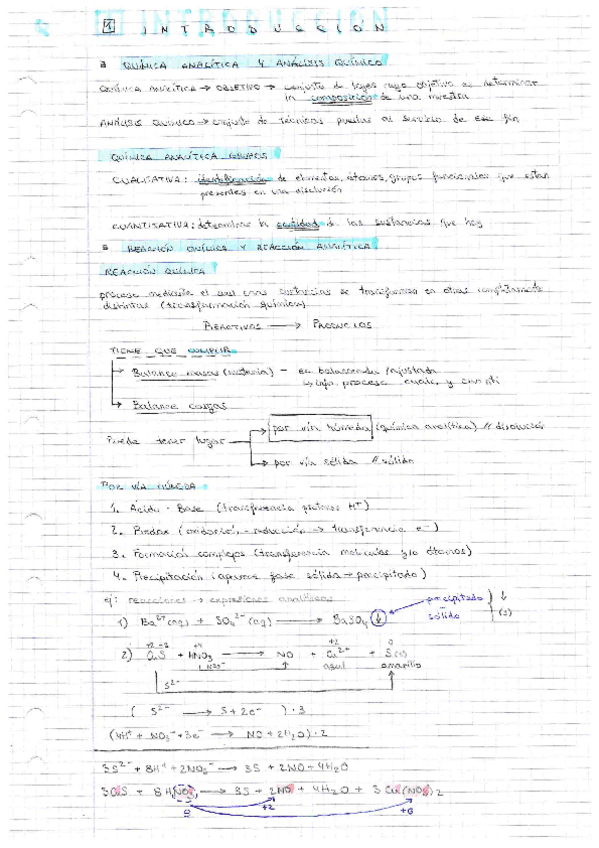 1 INTRODUCCION
QUÍMICA ANALÍTICA Y ANÁLISIS QUÍMICO
QUÍMICA ANALÍTICA → OBJETIVO → conjunto de leyes cuyo objetivo es determinar
la composición de una muestra
ANÁLISIS QUÍMICO → conjunto de técnicas puestas al servicio de ese fin
QUÍMICA ANALÍTICA GRUPOS
CUALITATIVA: identificación de elementos, átomos, grupos funcionales que están
presentes en una disolución
CUANTITATIVA: determinar la cantidad de las sustancias que hay
REACCIÓN QUÍMICA Y REACCIÓN ANALÍTICA
REACCIÓN QUÍMICA
proceso mediante el cual unas sustancias se transforman en otras completamente
distintas (transformación química)
REACTIVOS → PRODUCTOS
TIENE QUE CUMPLIR
→ Balance masas (materia) - ec. balanceada / ajustada
↳ info. proceso cuali. y cuanti
→ Balance cargas
Puede tener lugar
→ por vía húmeda (química analítica) // disolución
→ por vía sólida // sólido
POR VÍA HÚMEDA
1. Ácido - Base (transferencia protones H⁺)
2. Redox (oxidación - reducción → transferencia e⁻)
3. Formación complejos (transferencia moléculas y/o átomos)
4. Precipitación (aparece fase sólida → precipitado)
ej: reacciones → expresiones analíticas
1) Ba²⁺(aq) + SO₄²⁻(aq) → BaSO₄ ↓
precipitado ↓
sólido (s)
+2 -2 +5 +2 0
2) CuS + HNO₃ → NO + Cu²⁺ + S(s)
NO₃⁻ azul amarillo
S²⁻
( S²⁻ → S + 2e⁻ ) · 3
(4H⁺ + NO₃⁻ + 3e⁻ → NO + 2H₂O) · 2
3S²⁻ + 8H⁺ + 2NO₃⁻ → 3S + 2NO + 4H₂O
3CuS + 8HNO₃ → 3S + 2NO + 4H₂O + 3Cu(NO₃)₂
8 +2 +6